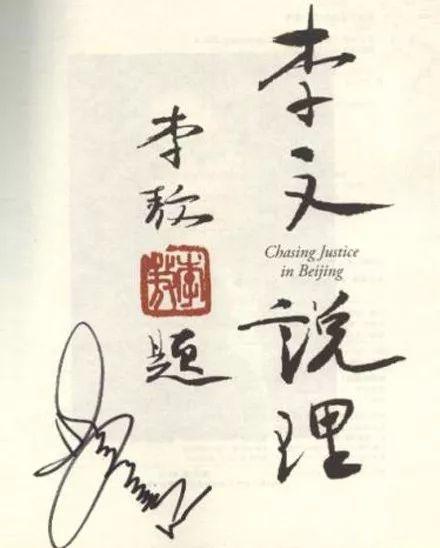 李文說理
Chasing Justice
in Beijing
李敖
李敖
題